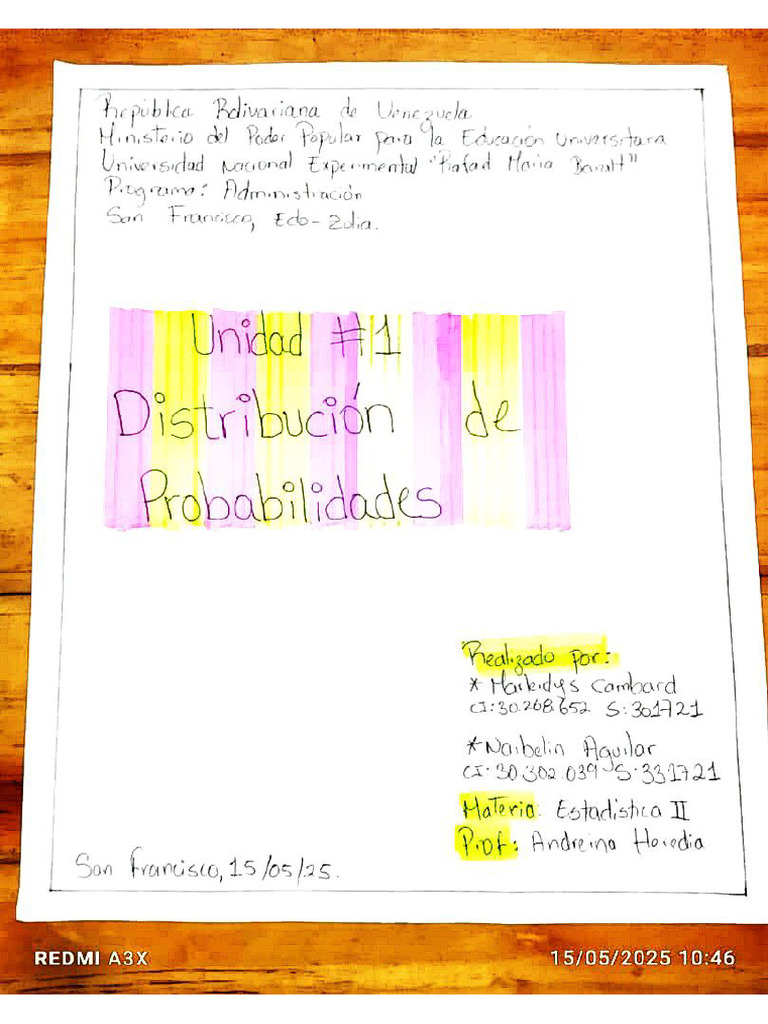 República Bolivariana de Venezuela
Ministerio del Poder Popular para la Educación Universitaria
Universidad Nacional Experimental "Rafael Maria Baralt"
Programa: Administración
San Francisco, Edo-Zulia.
Unidad #1
Distribución de
Probabilidades
Realizado por:
* Markidys Cambard
CI:30.268.652 S:301721
*Naibelin Aguilar
CI:30.302.039 S:331721
Materia: Estadística II
Prof: Andreina Heredia
San Francisco, 15/05/25.
REDMI A3X
15/05/2025 10:46